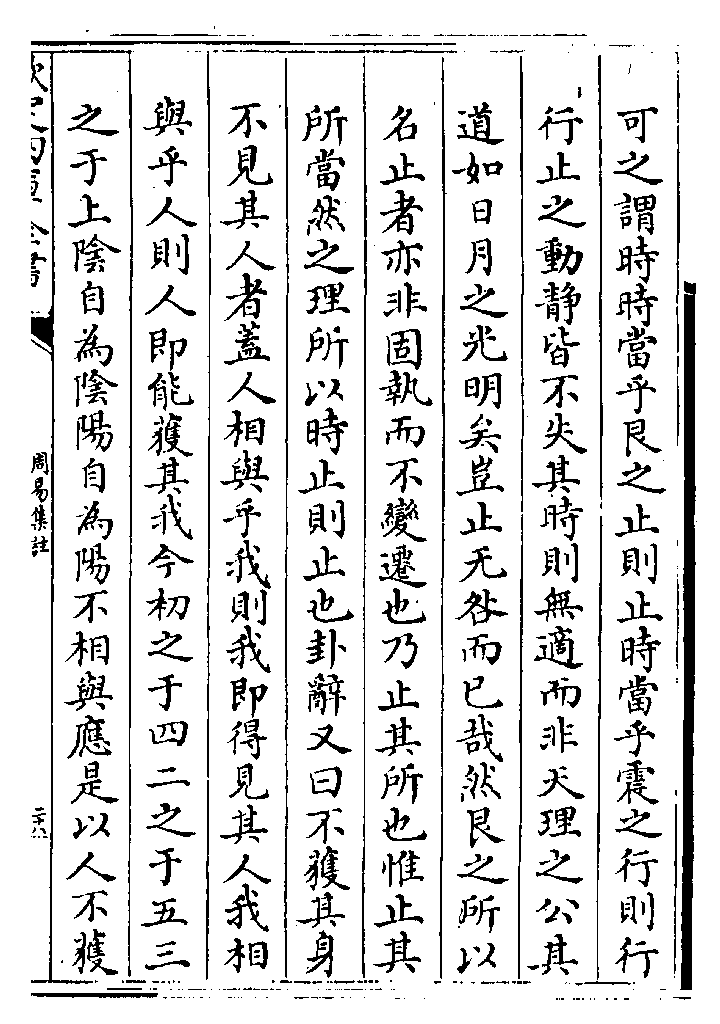 可之謂時時當乎艮之止則止時當乎震之行則行
行止之動静皆不失其時則無適而非天理之公其
道如日月之光明矣豈止无咎而已哉然艮之所以
名止者亦非固執而不變遷也乃止其所也惟止其
所當然之理所以時止則止也卦辭又曰不獲其身
不見其人者蓋人相與乎我則我即得見其人我相
與乎人則人即能獲其我今初之于四二之于五三
之于上陰自為陰陽自為陽不相與應是以人不獲
欽定四庫全書
周易集註
二十八